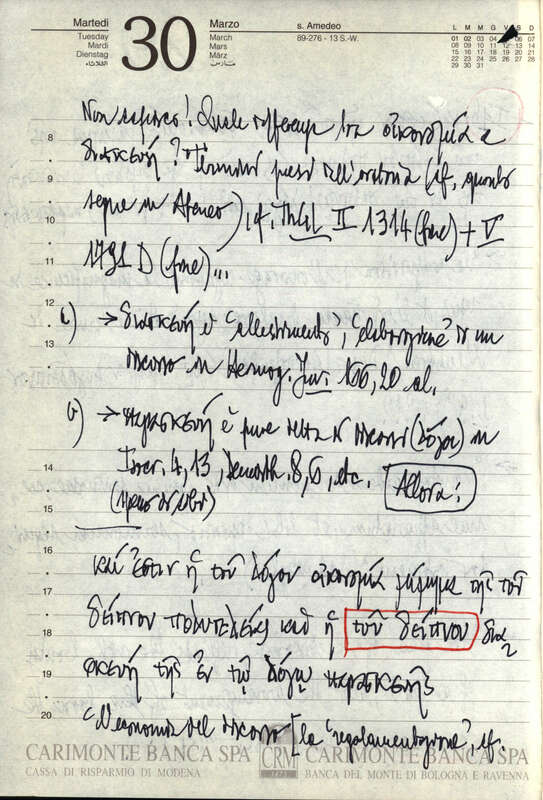 Martedì
Tuesday
Mardi
Dienstag
30
Marzo
March
Mars
März
s. Amedeo
89-276 - 13 S.-W.
L M M G V S D
01 02 03 04 06 07
08 09 10 11 12 13 14
15 16 17 18 19 20 21
22 23 24 25 26 27 28
29 30 31
Non capisco! Quale differenza tra οἰκονομία e
8
διασκευή? Termini presi dell'oratoria (cf. quanto
9
segue in Ateneo), cf. ThGL II 1314 (fine) + V
10
1791 D (fine)...
11
12
→ διασκευή è "allestimento", "elaborazione" di un
13
discorso in Hermog. Inv. 166, 20 al.
→ παρασκευή è pure detta di discorsi (λόγοι) in
14
Isocr. 4, 13, Demosth. 8, 6, etc. Allora:
15
16
καί ἐστιν ἡ τοῦ λόγου οἰκονομία μίμημα τῆς τοῦ
17
δείπνου πολυτελείας καὶ ἡ τοῦ δείπνου δια
18
σκευὴ τῆς ἐν τῷ λόγῳ παρασκευῆς
19
20
"L'economia del discorso [la "regolamentazione", cf.
CARIMONTE BANCA SPA
CASSA DI RISPARMIO DI MODENA
CRM
1473
CARIMONTE BANCA SPA
BANCA DEL MONTE DI BOLOGNA E RAVENNA